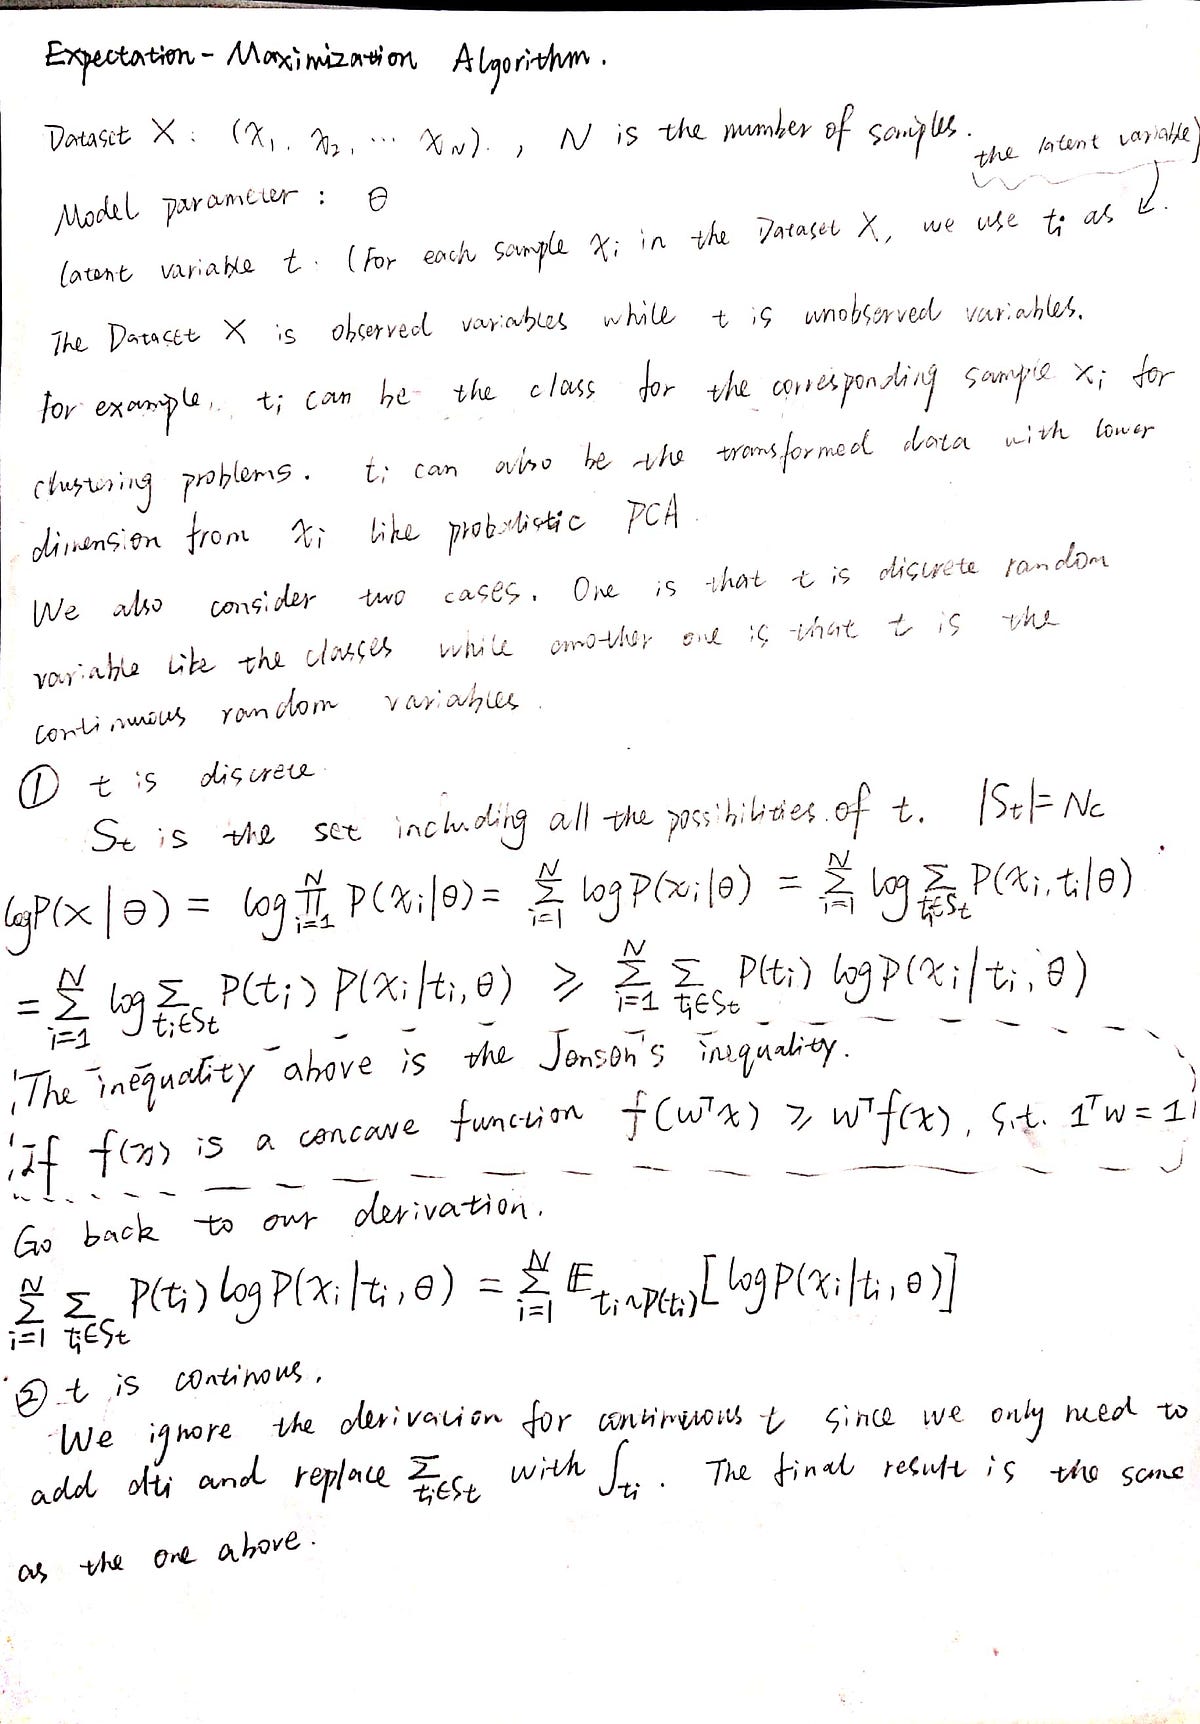 Expectation-Maximization Algorithm.
Dataset X: (x₁, x₂, ⋯ x_N)., N is the number of samples.
the latent variable)
Model parameter: θ
latent variable t. (For each sample xᵢ in the Dataset X, we use tᵢ as
The Dataset X is observed variables while t is unobserved variables.
for example, tᵢ can be the class for the corresponding sample xᵢ for
clustering problems. tᵢ can also be the transformed data with lower
dimension from xᵢ like probalistic PCA.
We also consider two cases. One is that t is discrete random
variable like the classes while another one is that t is the
continuous random variables.
① t is discrete.
S_t is the set including all the possibilities of t. |S_t|= N_c
logP(x|θ) = log ∏_{i=1}^{N} P(xᵢ|θ) = ∑_{i=1}^{N} logP(xᵢ|θ) = ∑_{i=1}^{N} log ∑_{tᵢ∈S_t} P(xᵢ, tᵢ|θ)
= ∑_{i=1}^{N} log ∑_{tᵢ∈S_t} P(tᵢ) P(xᵢ|tᵢ, θ) ≥ ∑_{i=1}^{N} ∑_{tᵢ∈S_t} P(tᵢ) logP(xᵢ|tᵢ, θ)
The inequality above is the Jenson's inequality.
If f(x) is a concave function f(wᵀx) ≥ wᵀf(x), s.t. 1ᵀw = 1
Go back to our derivation.
∑_{i=1}^{N} ∑_{tᵢ∈S_t} P(tᵢ) logP(xᵢ|tᵢ, θ) = ∑_{i=1}^{N} 𝔼_{tᵢ~P(tᵢ)} [logP(xᵢ|tᵢ, θ)]
② t is continous.
We ignore the derivation for continuous t since we only need to
add dtᵢ and replace ∑_{tᵢ∈S_t} with ∫_{tᵢ}. The final result is the same
as the one above.